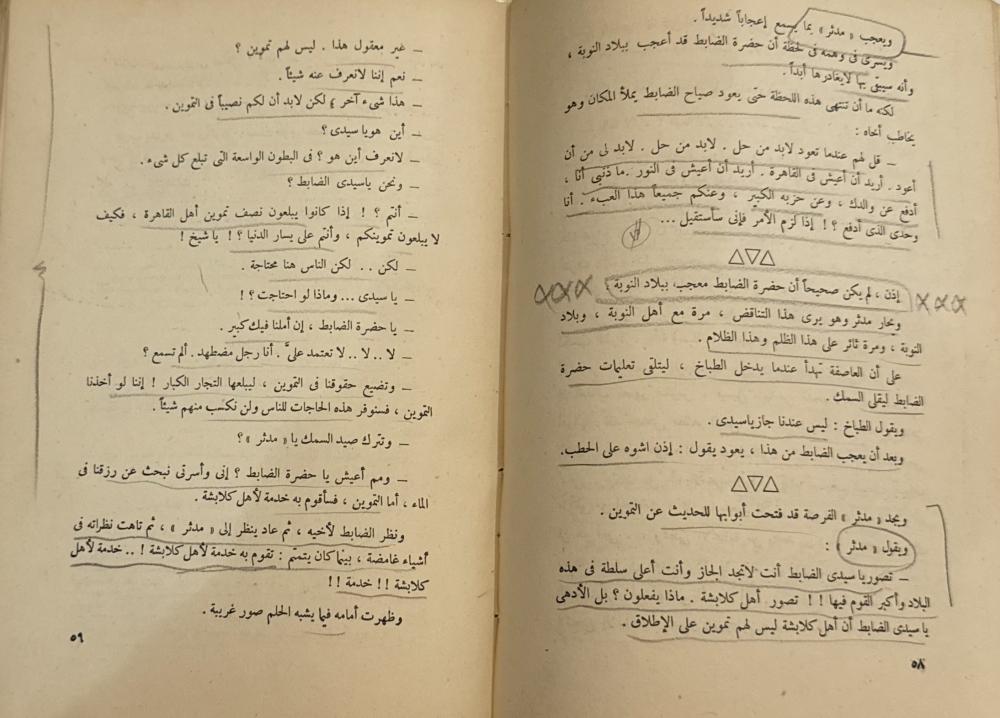 ويعجب « مدثر » بما يسمع إعجاباً شديداً .
ويسرى فى وهمه فى لحظة أن حضرة الضابط قد أعجب ببلاد النوبة ،
وأنه سيبقى بها لايغادرها أبداً .
لكنه ما أن تنتهى هذه اللحظة حتى يعود صياح الضابط يملأ المكان وهو
يخاطب أخاه :
ــ قل لهم عندما تعود لابد من حل . لابد من حل . لابد لى من أن
أعود . أريد أن أعيش فى القاهرة . أريد أن أعيش فى النور . ما ذنبى أنا ،
أدفع عن والدك ، وعن حزبه الكبير ، وعنكم جميعاً هذا العبء . أنا
وحدى الذى أدفع ؟ ! إذا لزم الأمر فإنى سأستقيل ...
△▽△
إذن ، لم يكن صحيحاً أن حضرة الضابط معجب ببلاد النوبة ؛
ويحار مدثر وهو يرى هذا التناقض ، مرة مع أهل النوبة ، وبلاد
النوبة ، ومرة ثائر على هذا الظلم وهذا الظلام .
على أن العاصفة تهدأ عندما يدخل الطباخ ، ليتلقى تعليمات حضرة
الضابط ليقلى السمك .
ويقول الطباخ : ليس عندنا جاز ياسيدى .
وبعد أن يعجب الضابط من هذا ، يعود يقول : إذن اشوه على الحطب .
△▽△
ويجد « مدثر » الفرصة قد فتحت أبوابها للحديث عن التموين .
ويقول « مدثر » :
ــ تصور يا سيدى الضابط أنت لاتجد الجاز وأنت أعلى سلطة فى هذه
البلاد وأكبر القوم فيها ! ! تصور أهل كلابشة . ماذا يفعلون ؟ بل الأدهى
يا سيدى الضابط أن أهل كلابشة ليس لهم تموين على الإطلاق .
٥٨
ــ غير معقول هذا . ليس لهم تموين ؟
ــ نعم إننا لانعرف عنه شيئاً .
ــ هذا شىء آخر ؛ لكن لابد أن لكم نصيباً فى التموين .
ــ أين هو يا سيدى ؟
ــ لانعرف أين هو ؟ فى البطون الواسعة التى تبلع كل شىء .
ــ ونحن ياسيدى الضابط ؟
ــ أنتم ؟ ! إذا كانوا يبلعون نصف تموين أهل القاهرة ، فكيف
لا يبلعون تموينكم ، وأنتم على يسار الدنيا ؟ ! يا شيخ !
ــ لكن .. لكن الناس هنا محتاجة .
ــ يا سيدى ... وماذا لو احتاجت ؟ !
ــ يا حضرة الضابط ، إن أملنا فيك كبير .
ــ لا .. لا .. لا تعتمد علىَّ . أنا رجل مضطهد . ألم تسمع ؟
ــ وتضيع حقوقنا فى التموين ، ليبلعها التجار الكبار ! إننا لو أخذنا
التموين ، فسنوفر هذه الحاجات للناس ولن نكسب منهم شيئاً .
ــ وتترك صيد السمك يا « مدثر » ؟
ــ ومم أعيش يا حضرة الضابط ؟ إنى وأسرتى نبحث عن رزقنا فى
الماء ، أما التموين ، فسأقوم به خدمة لأهل كلابشة .
ونظر الضابط لأخيه ، ثم عاد ينظر إلى « مدثر » ، ثم تاهت نظراته فى
أشياء غامضة ، بينما كان يتمتم : تقوم به خدمة لأهل كلابشة ! .. خدمة لأهل
كلابشة ! ! خدمة ! !
وظهرت أمامه فيما يشبه الحلم صور غريبة .
٥٩